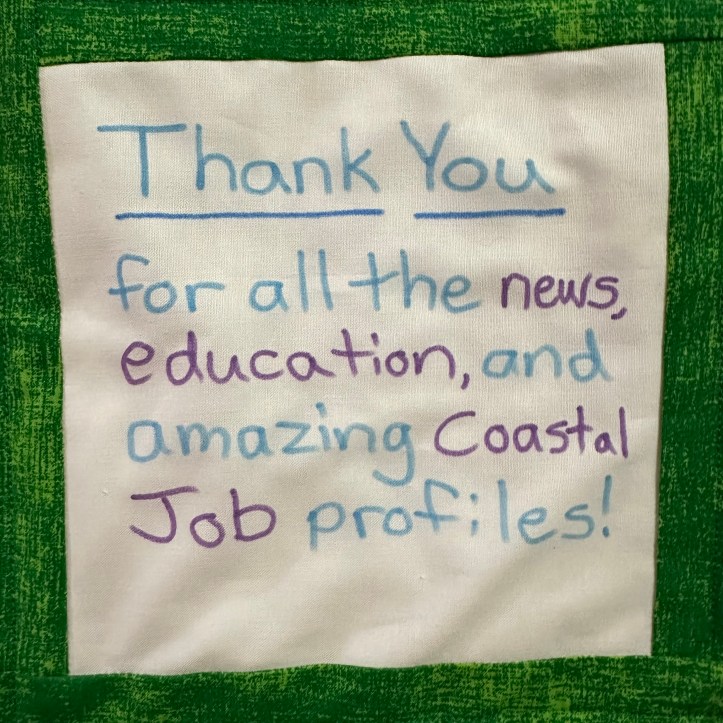 Thank You
for all the news,
education, and
amazing Coastal
Job profiles!